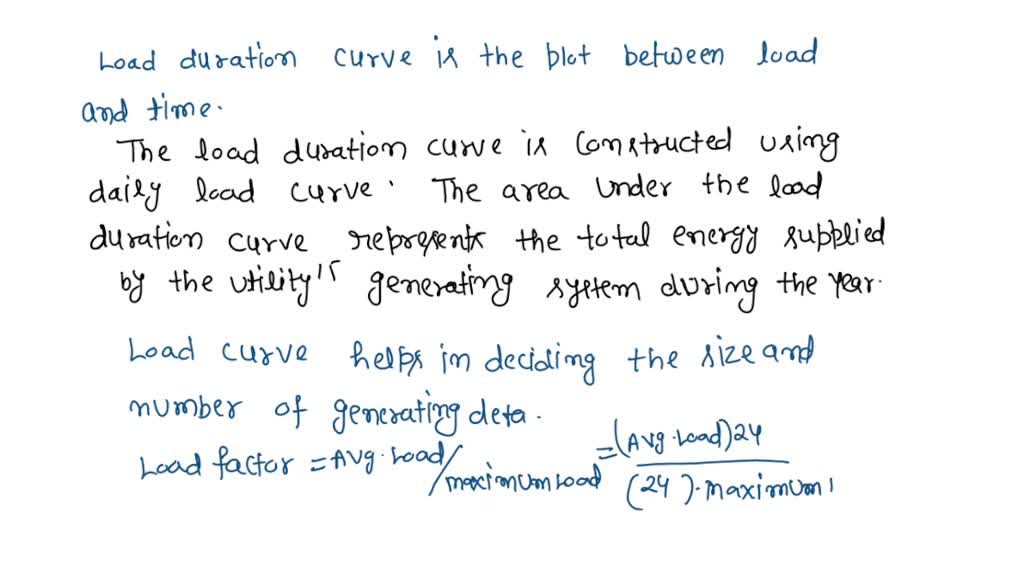 Load duration curve is the plot between load
and time.
The load duration curve is constructed using
daily load curve. The area under the load
duration curve represents the total energy supplied
by the utility's generating system during the year.
Load curve helps in deciding the size and
number of generating deta.
Load factor = Avg. Load / maximum Load = (Avg. Load) 24 / (24). maximum